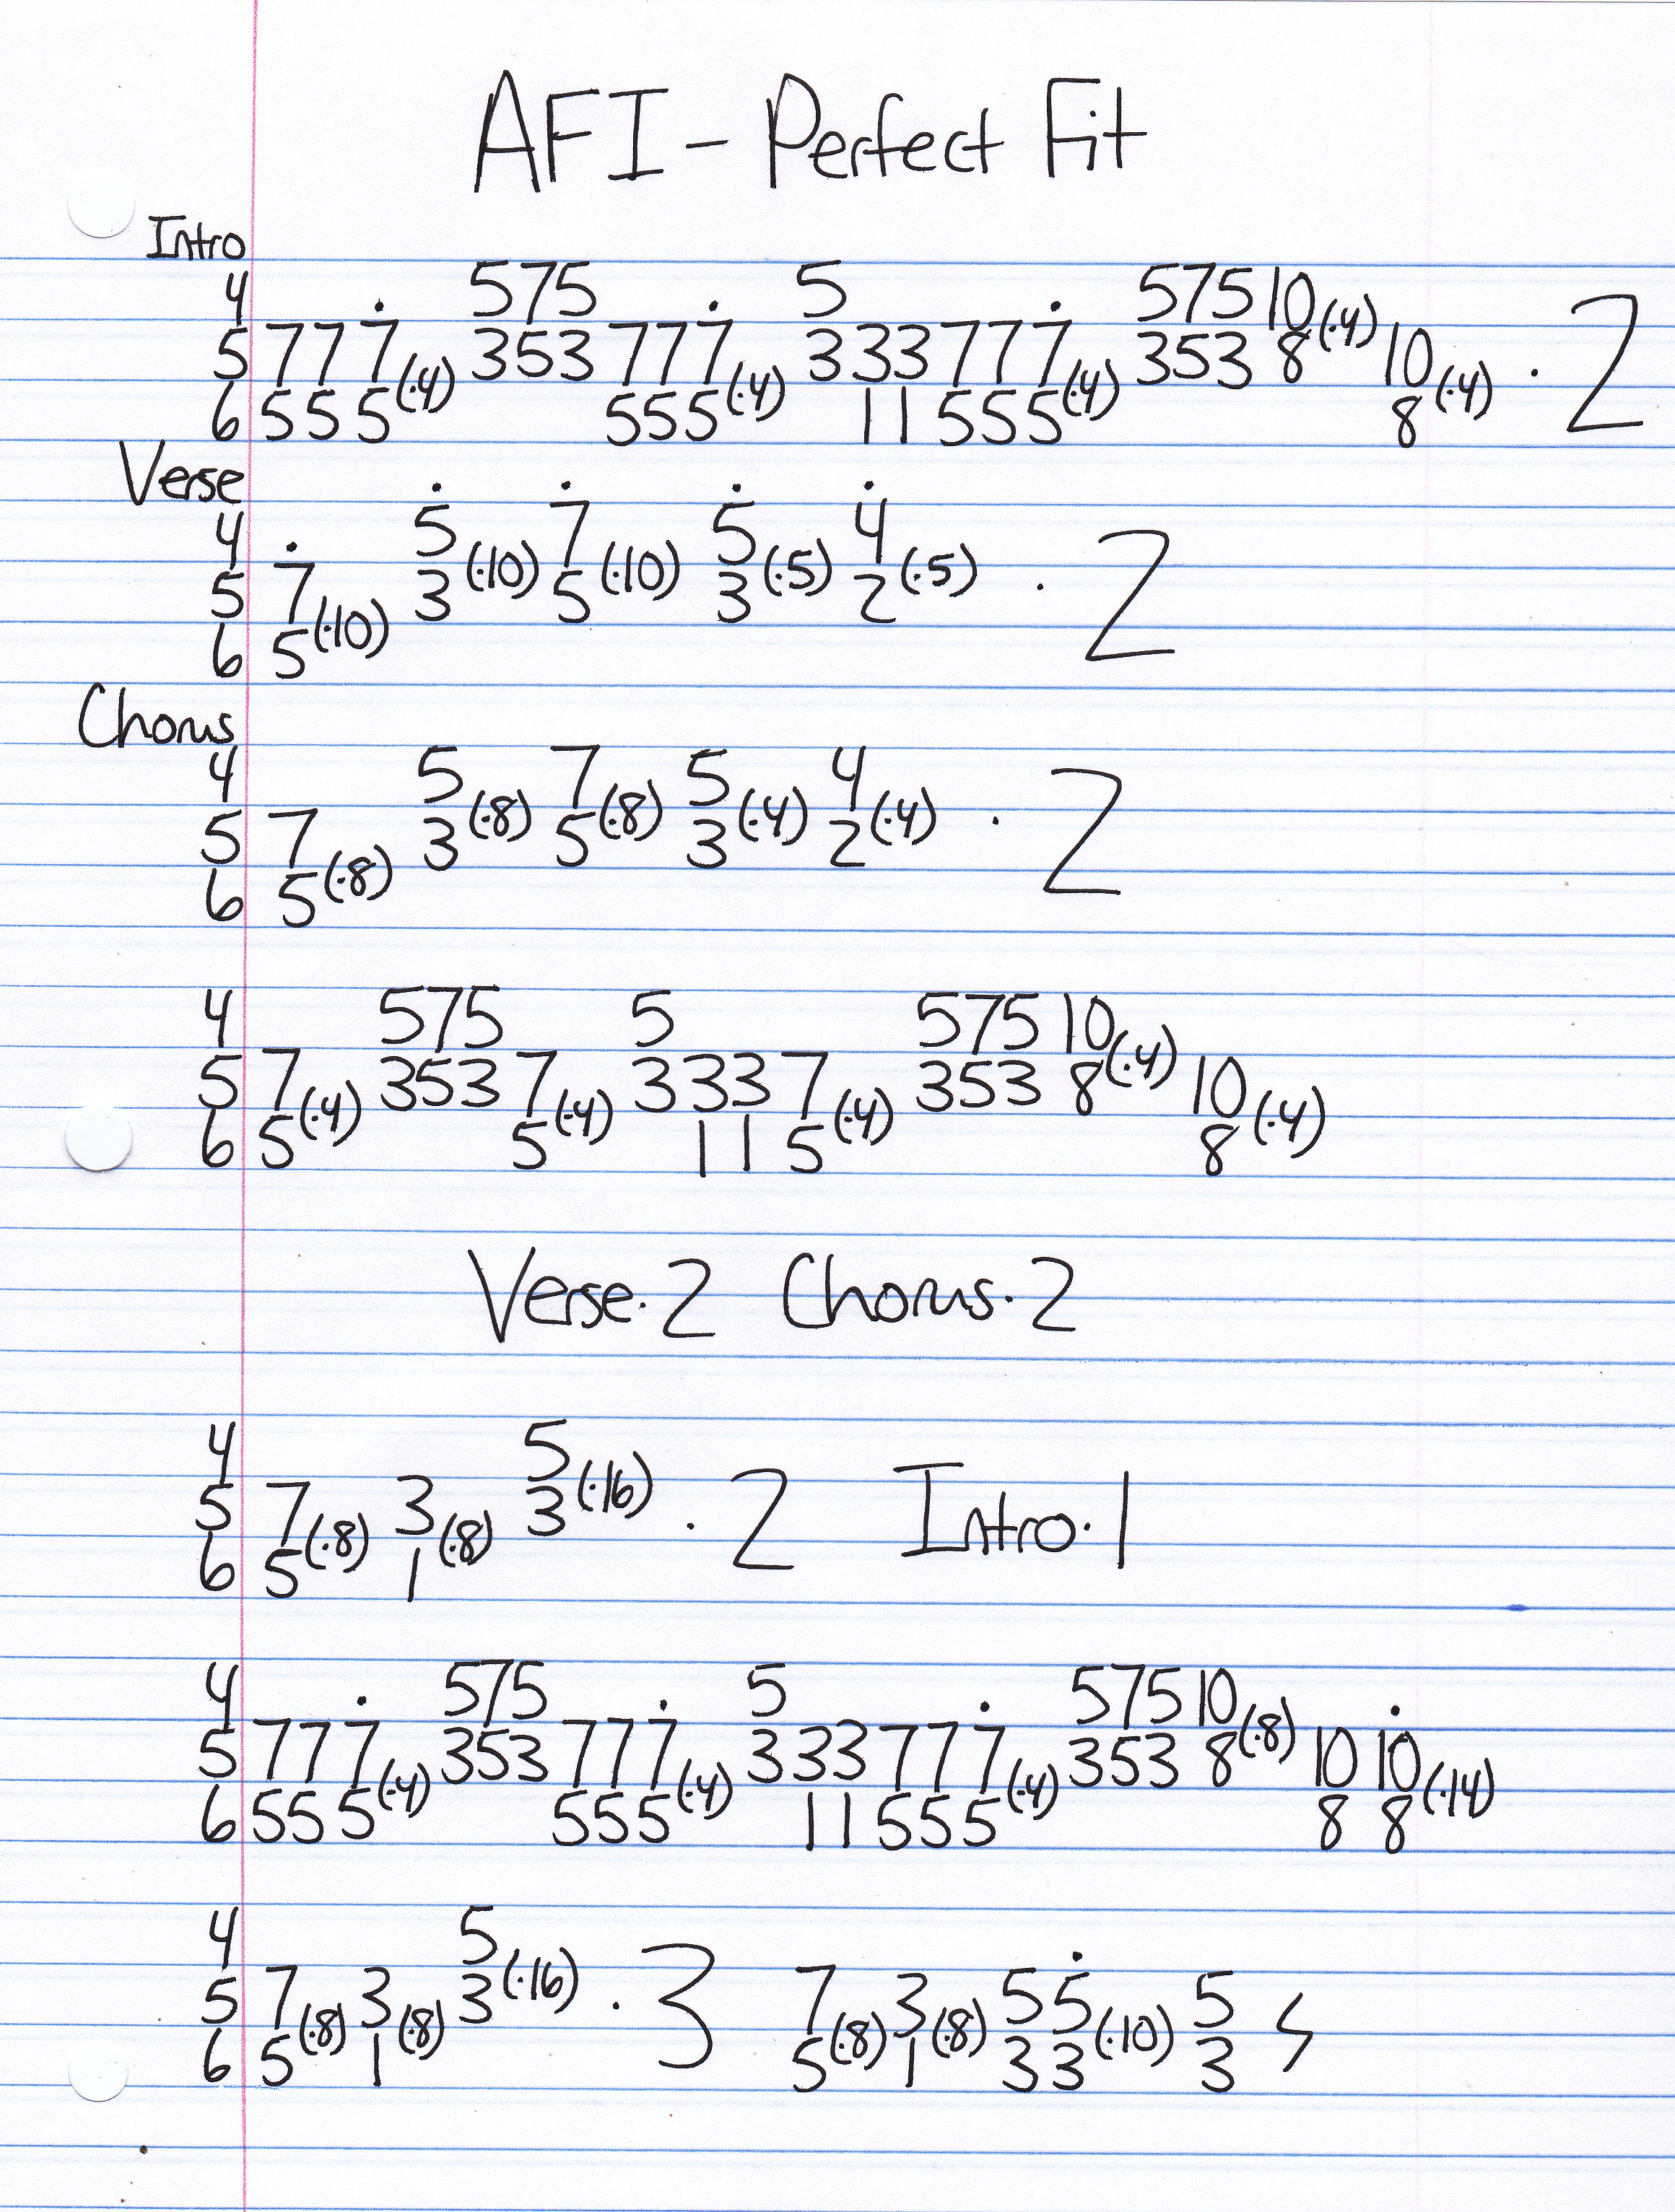 AFI - Perfect Fit
Intro
4 575 5 575 10(·4)
5 7 7 7̇(·4) 353 7 7 7̇(·4) 3 3 3 7 7 7̇(·4) 353 8 10(·4) · 2
6 5 5 5 5 5 5 1 1 5 5 5 8
Verse
4 5̇ 7̇ 5̇ 4̇
5 7̇ 3(·10) 5(·10) 3(·5) 2(·5) · 2
6 5(·10)
Chorus
4 5 7 5 4
5 7 3(·8) 5(·8) 3(·4) 2(·4) · 2
6 5(·8)
4 575 5 575 10(·4)
5 7(·4) 353 7(·4) 3 3 3 7(·4) 353 8 10(·4)
6 5 5 1 1 5 8
Verse·2 Chorus·2
4 5
5 7(·8) 3(·8) 3(·16) · 2 Intro·1
6 5 1
4 575 5 575 10(·8)
5 7 7 7̇(·4) 353 7 7 7̇(·4) 3 3 3 7 7 7̇(·4) 353 8 10 10̇(·14)
6 5 5 5 5 5 5 1 1 5 5 5 8 8
4 5
5 7(·8) 3(·8) 3(·16) · 3 7(·8) 3(·8) 5 5̇(·10) 5
6 5 1 5 1 3 3 3